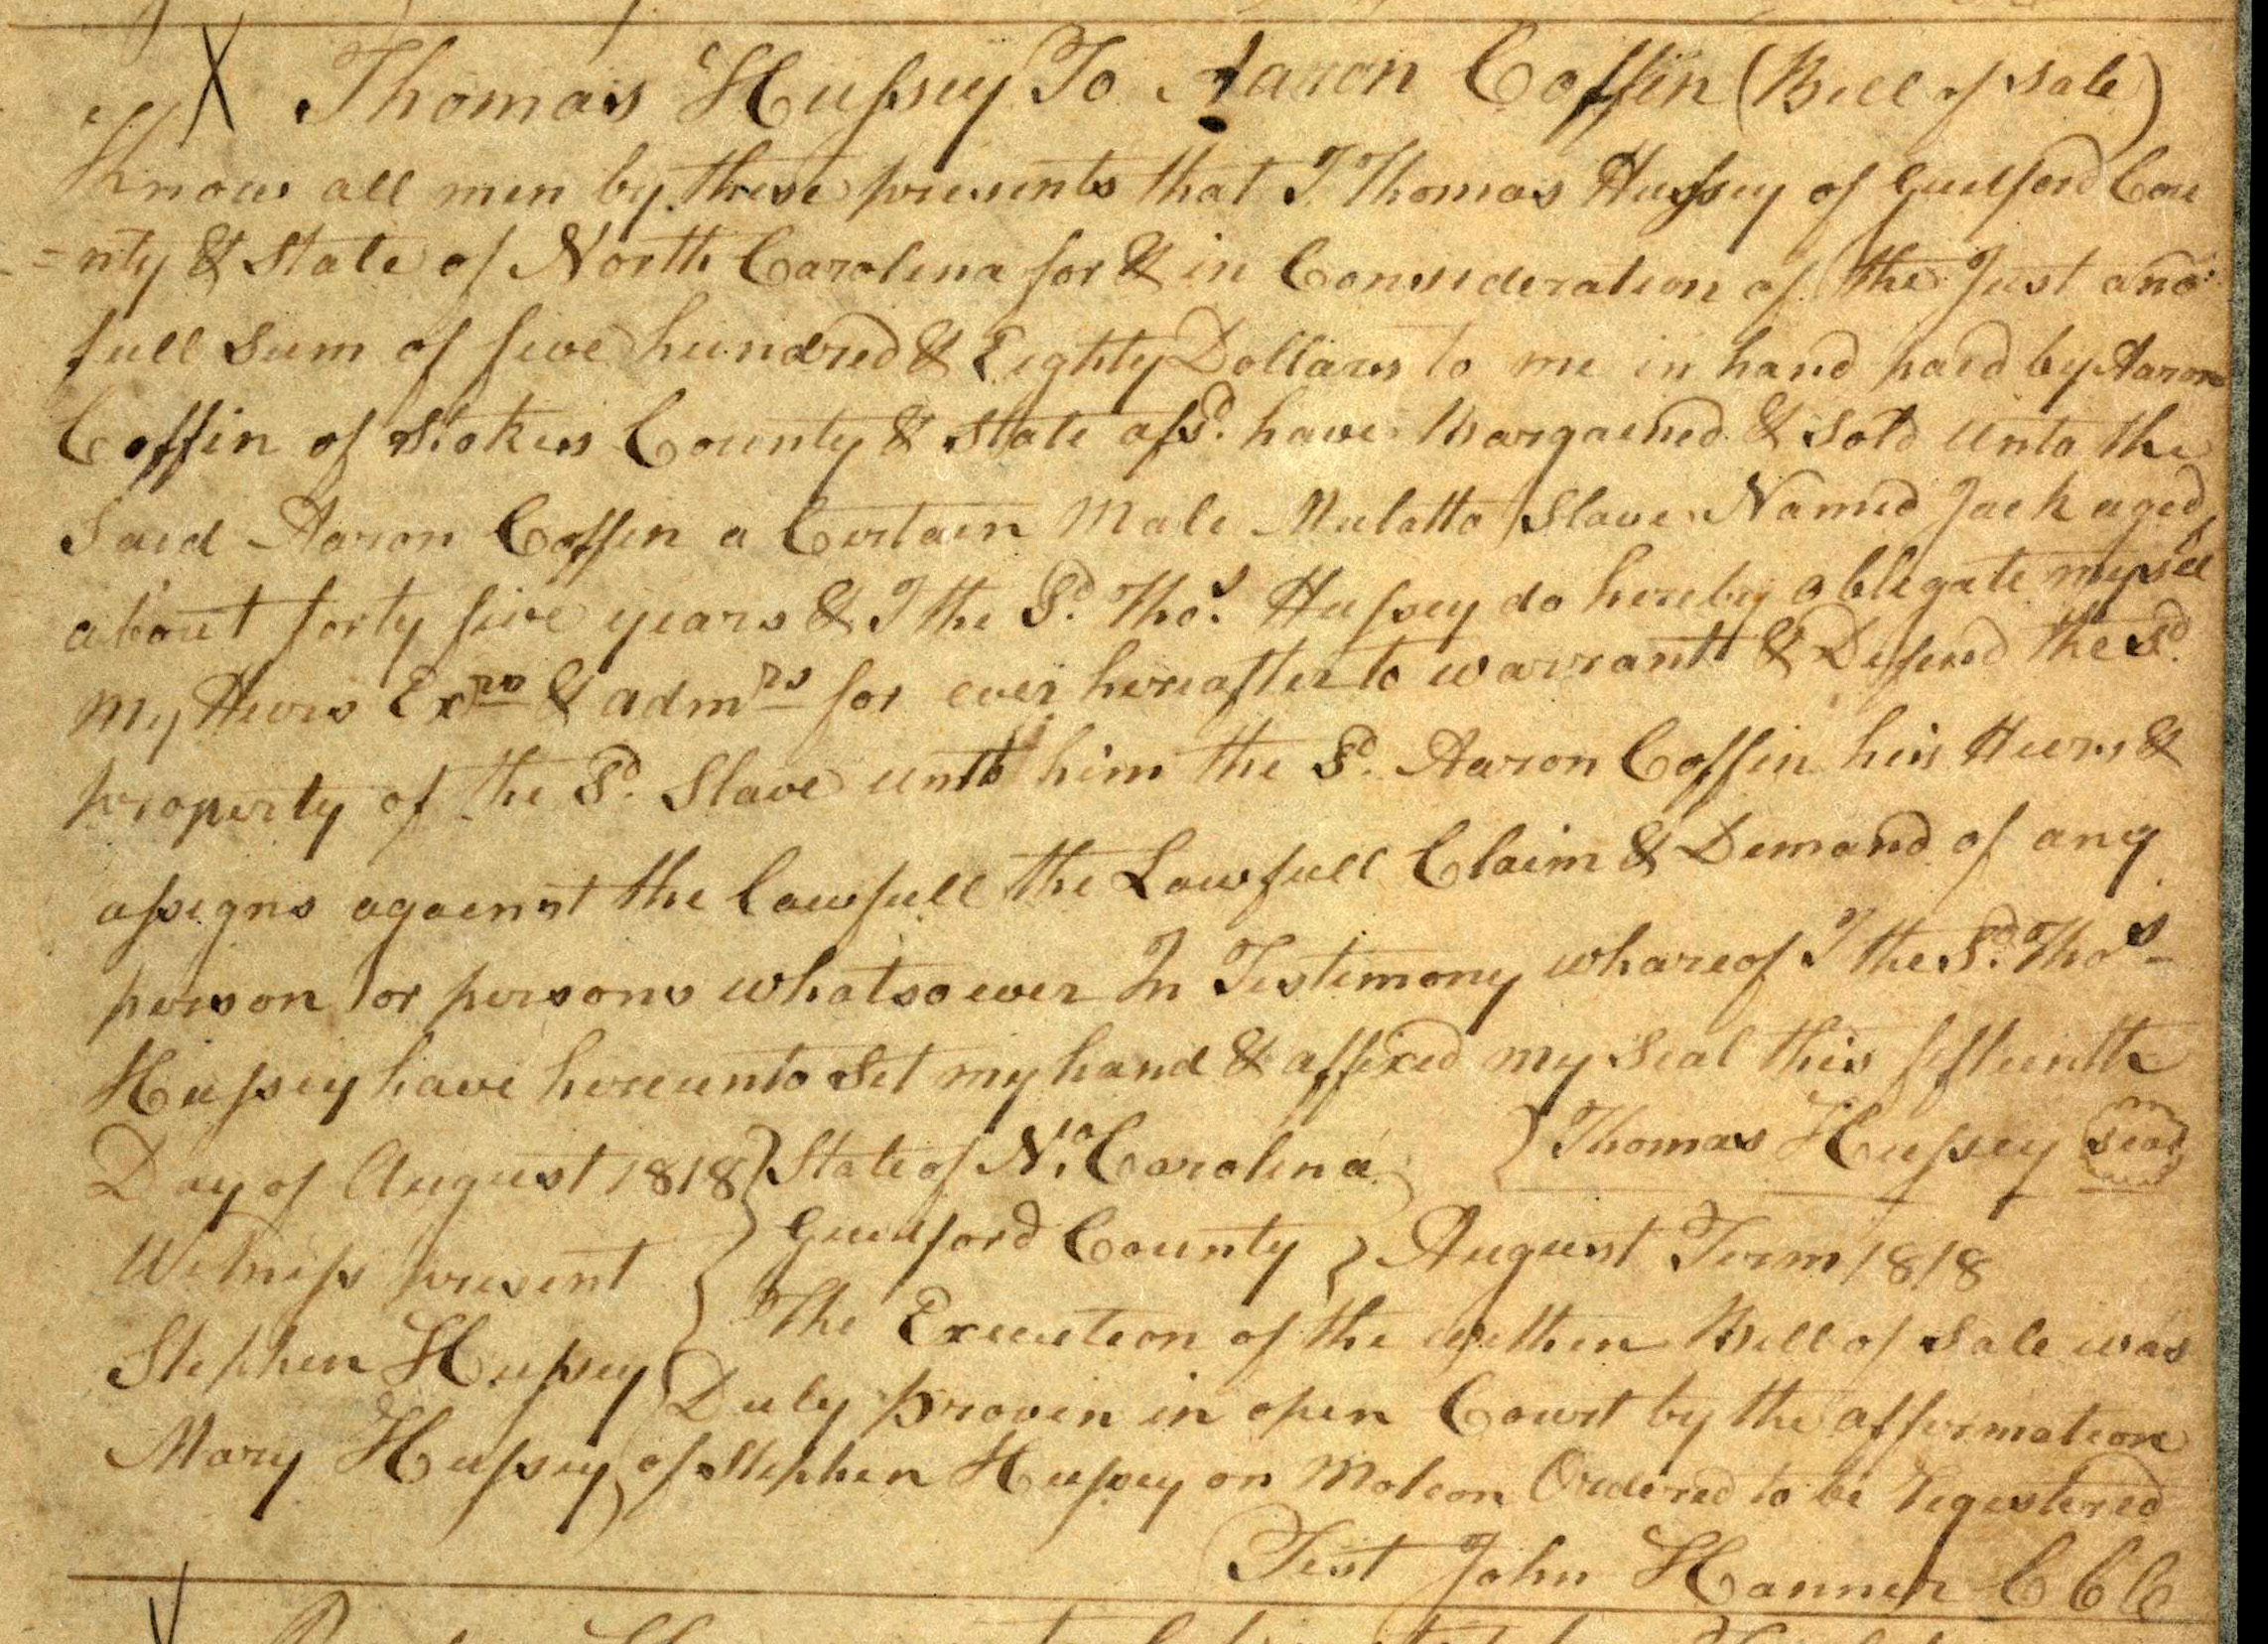 X Thomas Hussey To Aaron Coffin (Bill of Sale)
Know all men by these presents that I Thomas Hussey of Guilford Cou
=nty & State of North Carolina for & in Consideration of the Just and
full Sum of five hundred & Eighty Dollars to me in hand paid by Aaron
Coffin of Stokes County & State afsd. have Bargained & Sold unto the
Said Aaron Coffin a Certain Male Mulatto Slave Named Jack aged
about forty five years & I the Sd. Thos. Hussey do hereby oblegate myself
my Heirs Exrs & admrs for ever hereafter to warrant & Defend the Sd.
property of the Sd. Slave unto him the Sd. Aaron Coffin his Heirs &
assigns against the lawfull the Lawfull Claim & Demand of any
person or persons whatsoever In Testimony whareof I the Sd. Thos
Hussey have hereunto Set my hand & affixed my Seal this fifteenth
Day of August 1818 } State of No. Carolina } Thomas Hussey Seal
Guilford County } August Term 1818
Witness present
The Execution of the within Bill of Sale was
Stephen Hussey
Duly proven in open Court by the affirmation
Mary Hussey
of Stephen Hussey on Motion Ordered to be Registered
Test John Hanner C C C